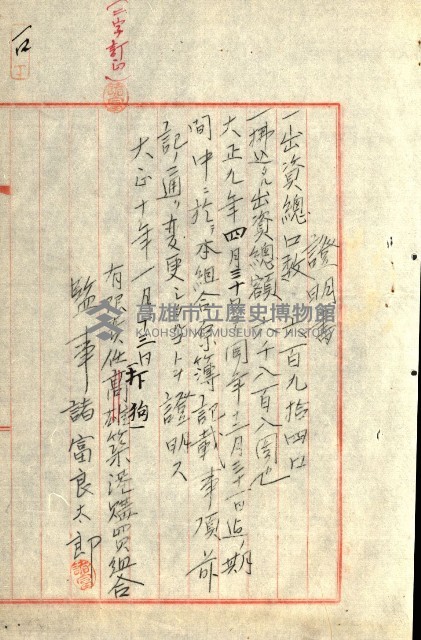 (二字訂正)
證明書
一出資總口數 百九拾四口
一拂込出資總額 千八百八圓也
大正九年四月三十日 同年十二月三十一日迄ノ期
間中ニ於テ本組合 簿記載事項前
記ノ通リ変更シタ 證明ス
大正十年一月 三日
打狗
有限責任高雄築港購買組合
監事 諸富良太郎
高雄市立歷史博物館
KAOHSIUNG MUSEUM OF HISTORY